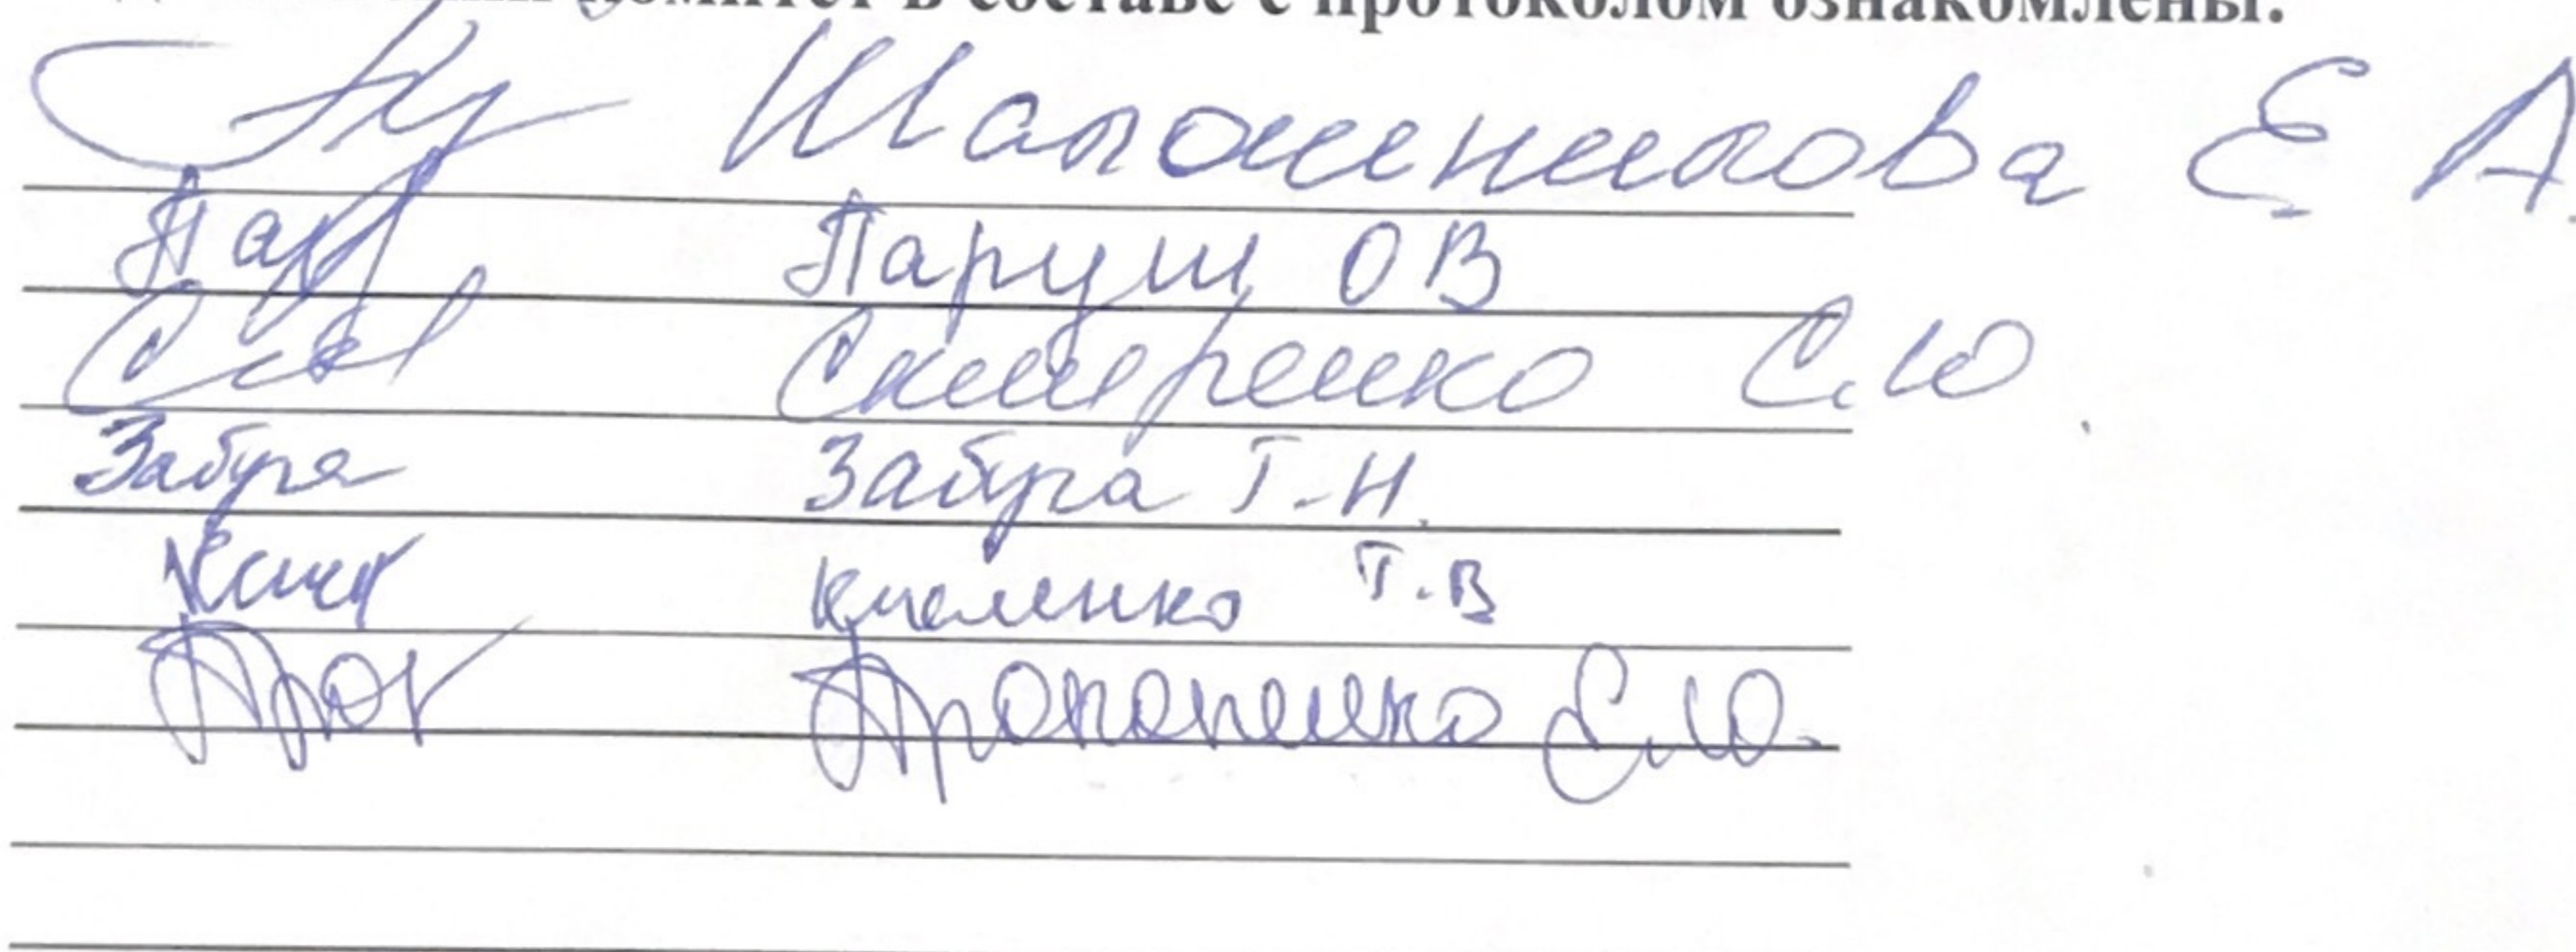 комитет в составе с протоколом ознакомлены:
Шапошникова Е А.
Пар Паруш О В
Скляренко С.Ю.
Забура Забура Т.Н.
Кмеленко Т.В
Прок Прокопенко Е.Ю.